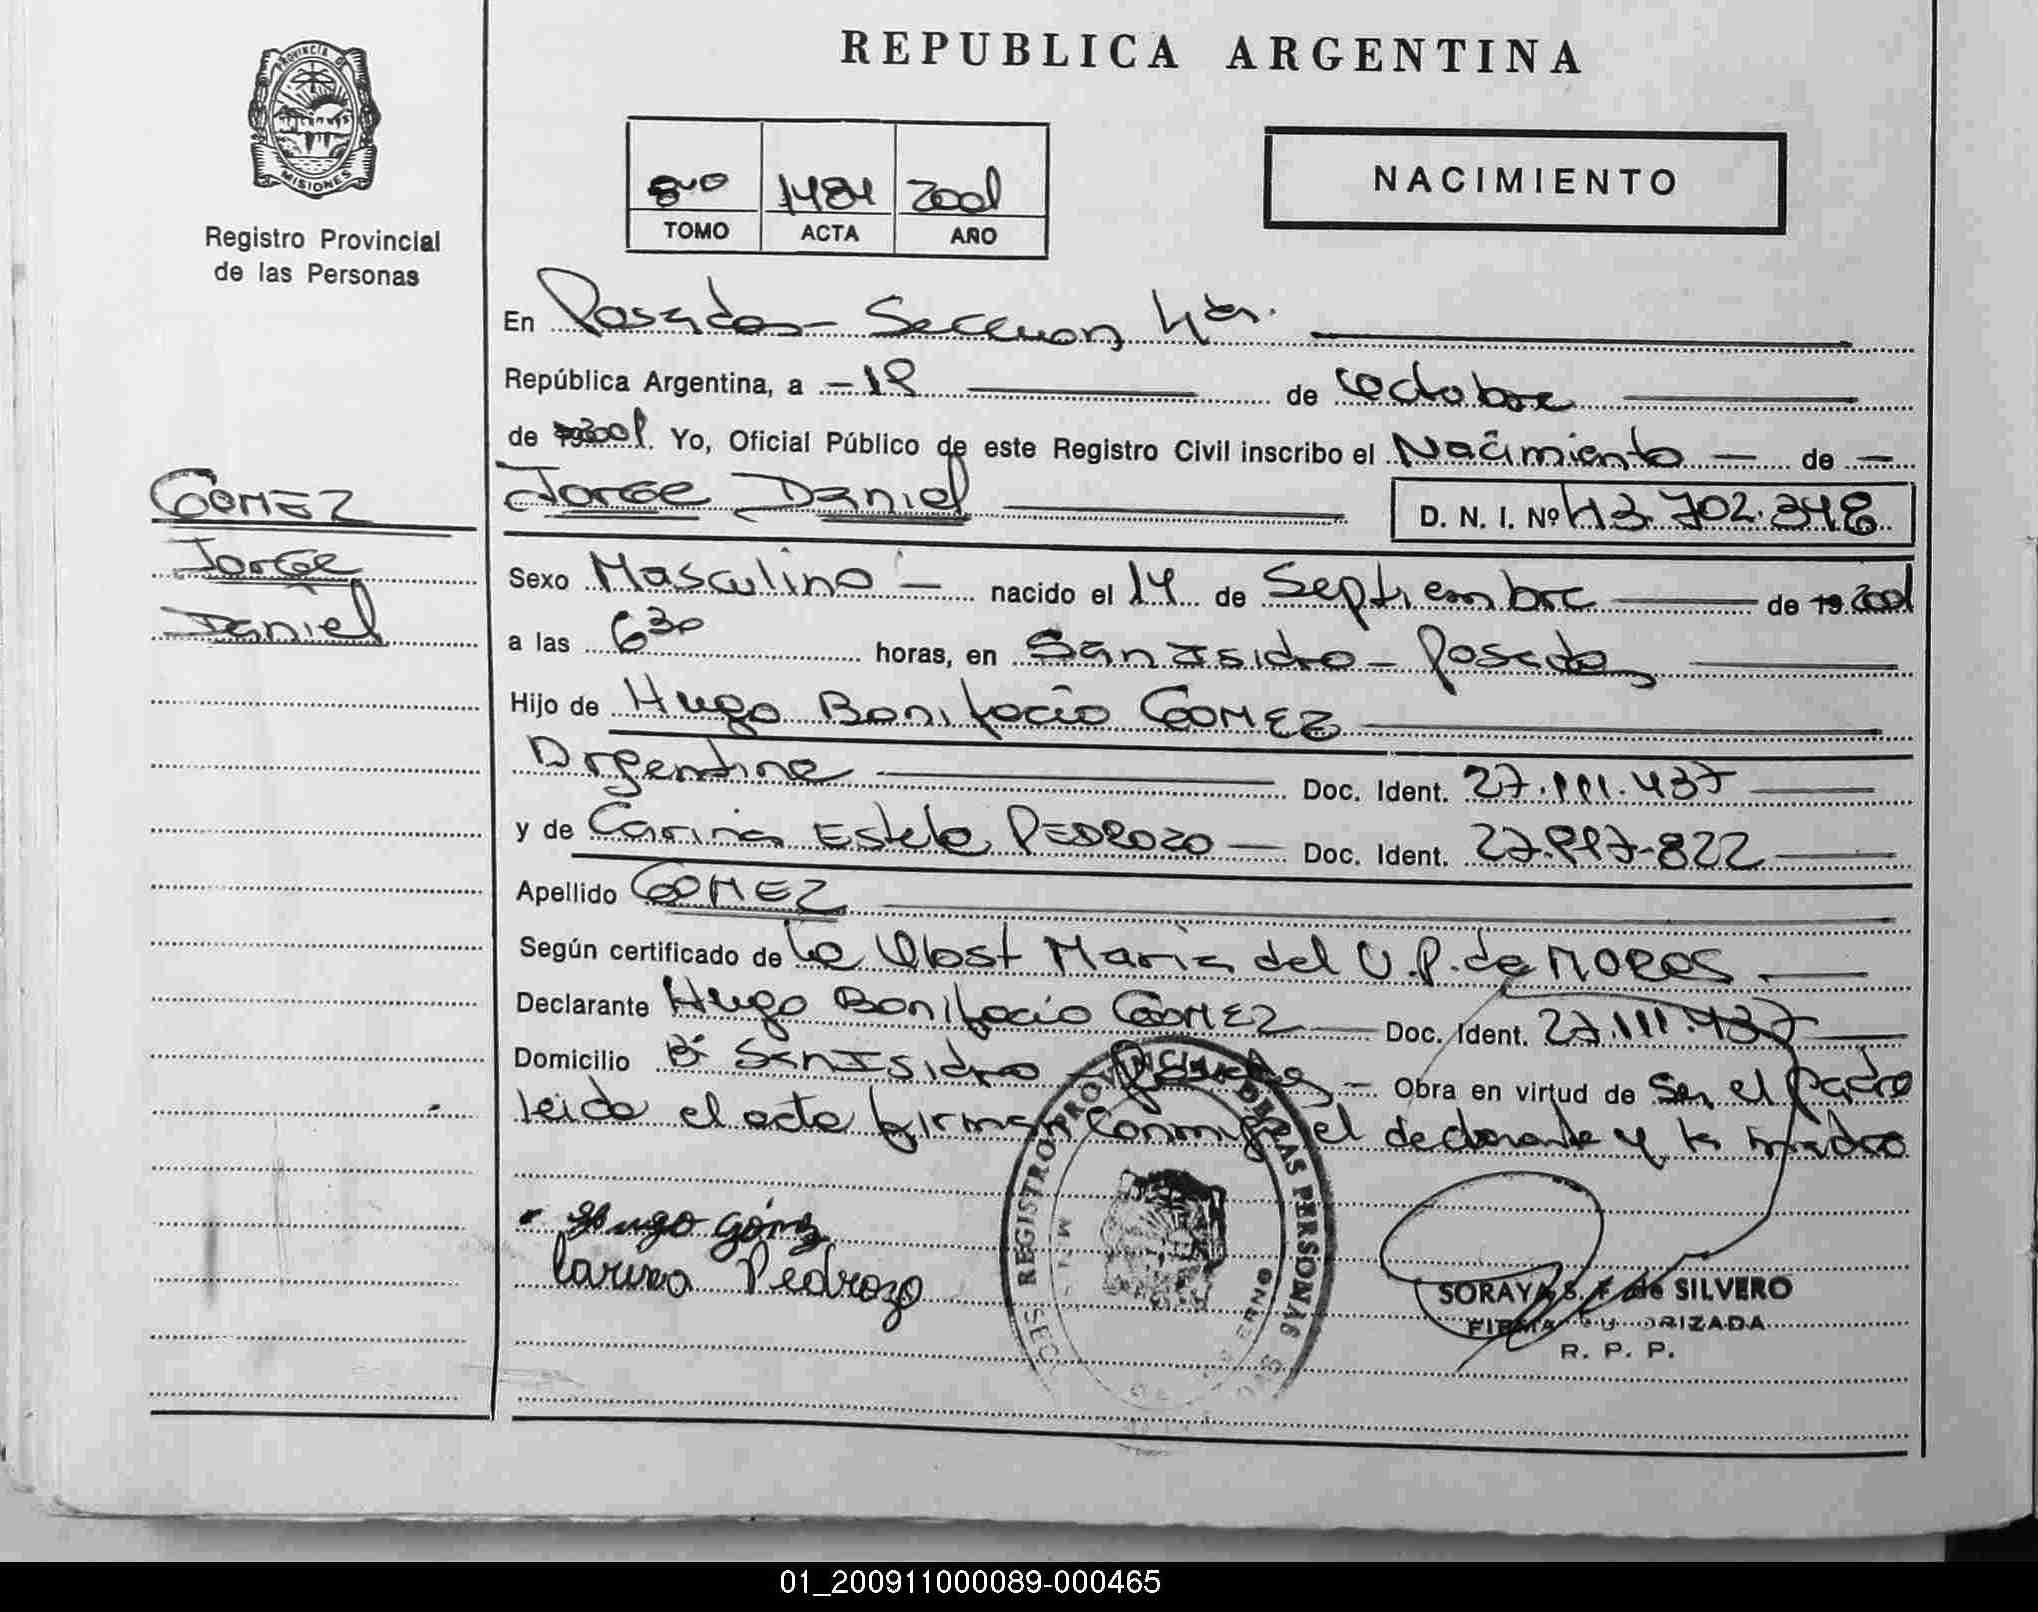 REPUBLICA ARGENTINA
PROVINCIA DE
MISIONES
Registro Provincial
de las Personas
8vo 1484 2001
TOMO ACTA AÑO
NACIMIENTO
En Posadas - Seccion 4ta.
República Argentina, a - 18 de octubre
de 2001. Yo, Oficial Público de este Registro Civil inscribo el Nacimiento — de —
GOMEZ
Jorge
Daniel
Jorge Daniel D. N. I. Nº 43.702.348
Sexo Masculino — nacido el 14 de Septiembre — de 19 2001
a las 6 30 horas, en San Isidro - Posadas
Hijo de Hugo Bonifacio GOMEZ
Argentina Doc. Ident. 27.111.437
y de Carina Estela PEDROZO — Doc. Ident. 27.117.822
Apellido GOMEZ
Según certificado de la Obst Maria del U.P. de MOROS
Declarante Hugo Bonifacio GOMEZ — Doc. Ident. 27.111.437
Domicilio Bº San Isidro - Posadas — Obra en virtud de Ser el padre
leida el acta firman conmigo el declarante y la madre
Hugo Gómez
Carina Pedrozo
REGISTRO PROVINCIAL DE LAS PERSONAS
SORAYA S. F. de SILVERO
FIRMA AUTORIZADA
R. P. P.
01_200911000089-000465